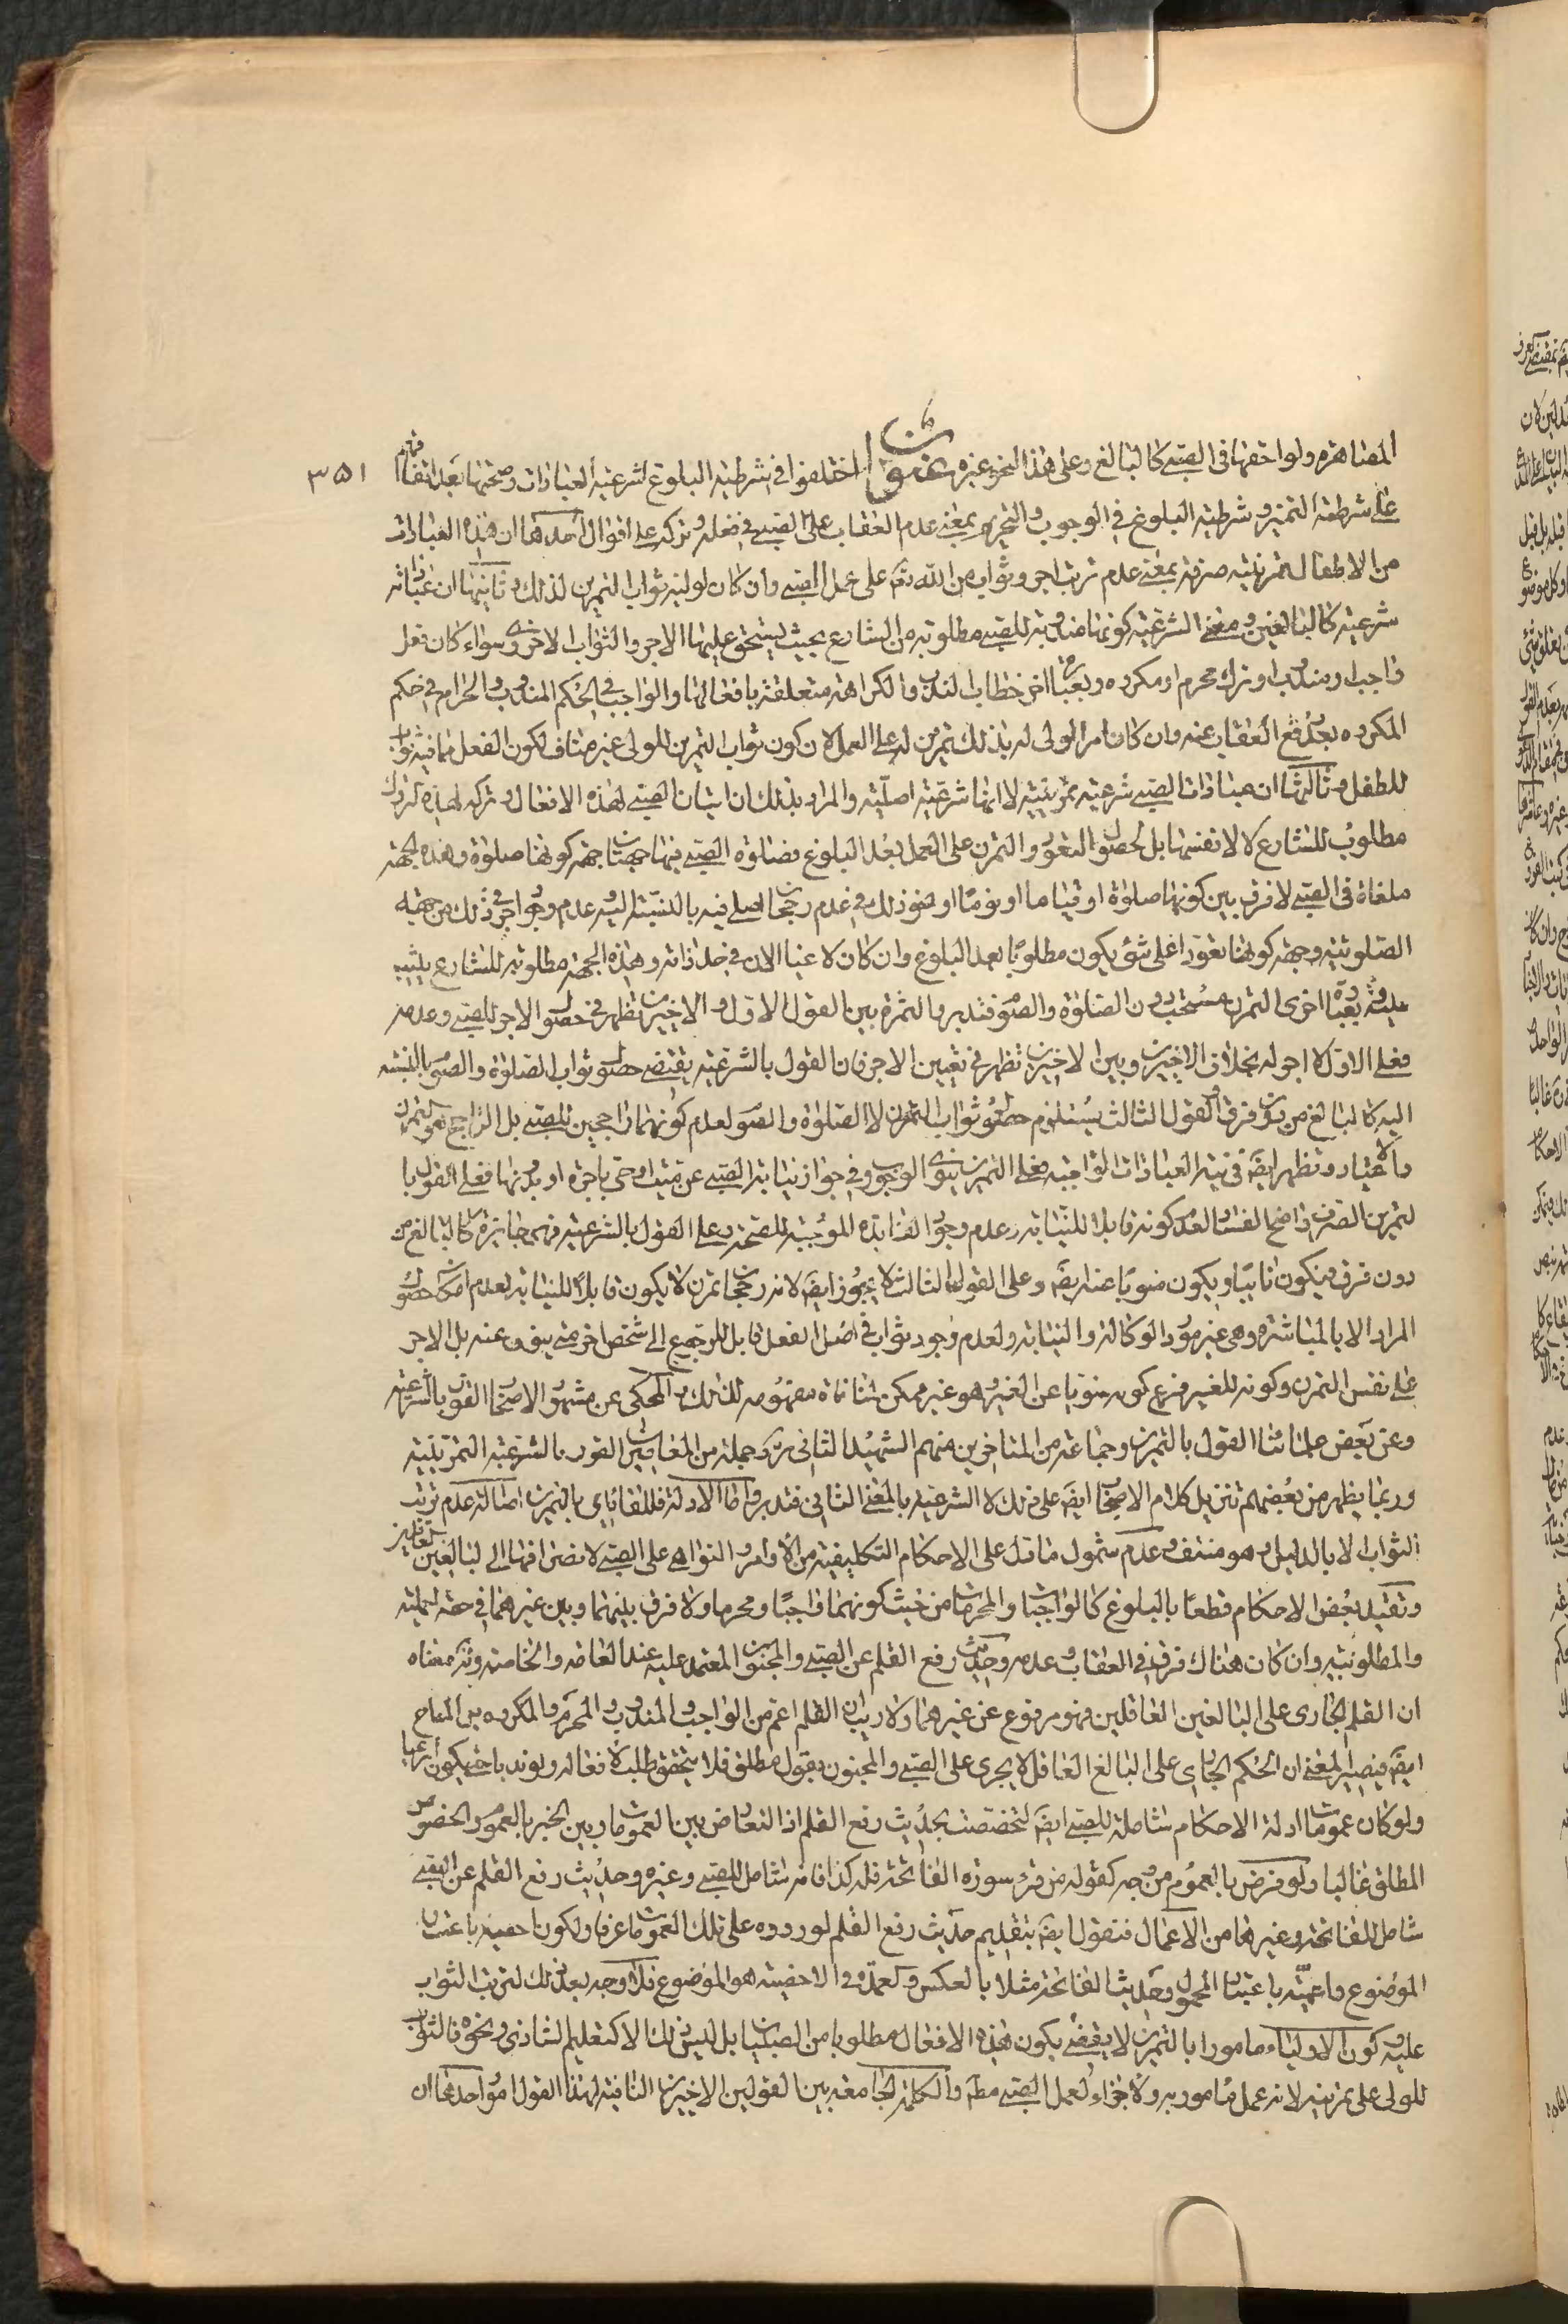 المصاهرة ولواحقها في الصبي كالبالغ وعلى هذا النحو غيره عنوان اختلفوا في شرطية البلوغ لشرعية العبادات وصحتها بعد اتفاقهم
٣٥١
على شرطية التميز وشرطية البلوغ في الوجوب والتحريم بمعنى عدم العقاب على الصبي في فعله وتركه على اقوال احدها ان هذه العبادات
من الاطفال تمرينية صرفة بمعنى عدم ترتب اجر وثواب من الله تع على عمل الصبي وان كان لوليه ثواب التمرين لذلك وثانيها ان عباداته
شرعية كالبالغين ومعنى الشرعية كونها مندوبة للصبي مطلوبة من الشارع بحيث يستحق عليها الاجر والثواب الاخروي سواء كان فعل
واجب او مندوب او ترك محرم او مكروه وبعبارة اخرى خطاب الندب والكراهة متعلقة بافعالها والواجب في الحكم المندوب والحرام في حكم
المكروه بعد رفع العقاب عنه وان كان امر الولي له بذلك تمرين له على العمل لان كون ثواب التمرين للولي غير مناف لكون الفعل مما فيه ثواب
للطفل وثالثها ان عبادات الصبي شرعية تمرينية لا انها شرعية اصلية والمراد بذلك ان اتيان الصبي لهذه الافعال وتركه لهذه التروك
مطلوب للشارع لا لانفسها بل لحصول التعود والتمرن على العمل بعد البلوغ فصلوة الصبي فيها جهتان جهة كونها صلوة وهذه الجهة
ملغاة في الصبي لا فرق بين كونها صلوة او قياما او نوما او نحو ذلك في عدم رجحان اصلي فيه بالنسبة اليه وعدم وجود اجر في ذلك من جهة
الصلوتية وجهة كونها تعودا على شئ يكون مطلوبا بعد البلوغ وان كان لاغيا الان في حد ذاته وهذه الجهة مطلوبة للشارع يثيب
عليه وبعبارة اخرى التمرن مستحب دون الصلوة والصوم فتدبر والثمرة بين القول الاول والاخيرين تظهر في حصول الاجر للصبي وعدمه
فعلى الاول لا اجر له بخلاف الاخيرين وبين الاخيرين تظهر في تعيين الاجر فان القول بالشرعية يقتضي حصول ثواب الصلوة والصوم بالنسبة
اليه كالبالغ من دون فرق والقول الثالث يستلزم حصول ثواب التمرن لا الصلوة والصوم لعدم كونهما راجحين للصبي بل الراجح هو التمرن
والاعتياد وتظهر ايضا في نية العبادات الواجبة فعلى التمرين ينوي الوجوب وفي جواز نيابة الصبي عن ميت او حي باجرة او بدونها فعلى القول با
لتمرين الصرف واضح الفساد لعدم كونه قابلا للنيابة وعدم وجود الفائدة الموجبة للصحة وعلى القول بالشرعية فهي جايزة كالبالغ من
دون فرق فيكون نائبا ويكون منوبا عنه ايضا وعلى القول الثالث لا يجوز ايضا لانه رجحان تمرن لا يكون قابلا للنيابة لعدم امكان حصول
المراد الا بالمباشرة وهي غير مورد الوكالة والنيابة ولعدم وجود ثواب في اصل الفعل قابل للرجوع الى شخص اخر حتى ينوب عنه بل الاجر
على نفس التمرن وكونه للغير فرع كونه منوبا عن الغير وهو غير ممكن لمنافاة مفهومه لذلك والمحكي عن مشهور الاصحاب القول بالشرعية
وعن بعض علمائنا القول بالتمرين وجماعة من المتاخرين منهم الشهيد الثاني وجملة من المعاصرين القول بالشرعية التمرينية
وربما يظهر من بعضهم تنزيل كلام الاصحاب ايضا على ذلك لا الشرعية بالمعنى الثاني فتدبر واما الادلة فللقائل بالتمرين اصالة عدم ترتب
الثواب الا بالدليل وهو منتف وعدم شمول ما دل على الاحكام التكليفية من الاوامر والنواهي على الصبي لانصرافها الى البالغين
وتقييد بعض الاحكام قطعا بالبلوغ كالواجبات والمحرمات من حيث كونهما واجبا ومحرما ولا فرق بينهما وبين غيرهما في جهة
والمطلوبية وان كان هناك فرق في العقاب وعدمه وحديث رفع القلم عن الصبي والمجنون المعتمد عليه عند العامة والخاصة معناه
ان القلم الجاري على البالغين العاقلين فهو مرفوع عن غيرهما ولا ريب ان القلم اعم من الواجب والمندوب والمحرم والمكروه بل المباح
ايضا فيصير المعنى ان الحكم الجاري على البالغ العاقل لا يجري على الصبي والمجنون بقول مطلق فلا يتحقق طلب لافعاله ولو ندبا حتى يكون شرعيا
ولو كان عمومات ادلة الاحكام شاملة للصبي ايضا لتخصصت بحديث رفع القلم اذ التعارض بين العمومات وبين الخبر بالعموم والخصوص
المطلق غالبا ولو فرض بالعموم من وجه كقوله من قرء سورة الفاتحة فله كذا فانه شامل للصبي وغيره وحديث رفع القلم عن الصبي
شامل للفاتحة وغيرها من الاعمال فنقول ايضا بتقديم حديث رفع القلم لوروده على تلك العمومات عرفا ولكونه اخصية باعتبار
الموضوع واعمية باعتبار المحمول وحديث الفاتحة مثلا بالعكس والعمدة في الاخصية هو الموضوع فلا وجه بعد ذلك لترتب الثواب
عليه وكون الاولياء مامورا بالتمرين لا يقتضي بكون هذه الافعال مطلوبا من الصبيان بل ليس ذلك الا كتعليم الشادي ونحوه فالثواب
للولي على تمرينه لانه عمل مامور به ولا جزاء لعمل الصبي مطلقا والكلمة الجامعة بين القولين الاخيرين النافية لهذا القول امور احدها ان